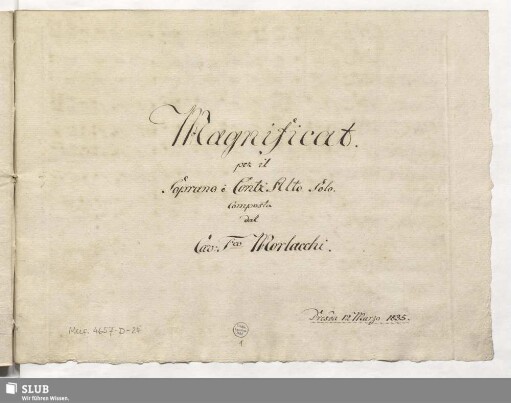 Magnificat.
per il
Soprano è Contr'Alto Solo.
Composta
dal
Cav. Fco Morlacchi.
Dresda 12 Marzo 1835.
Mus. 4657-D-24
1
SLUB
Wir führen Wissen.